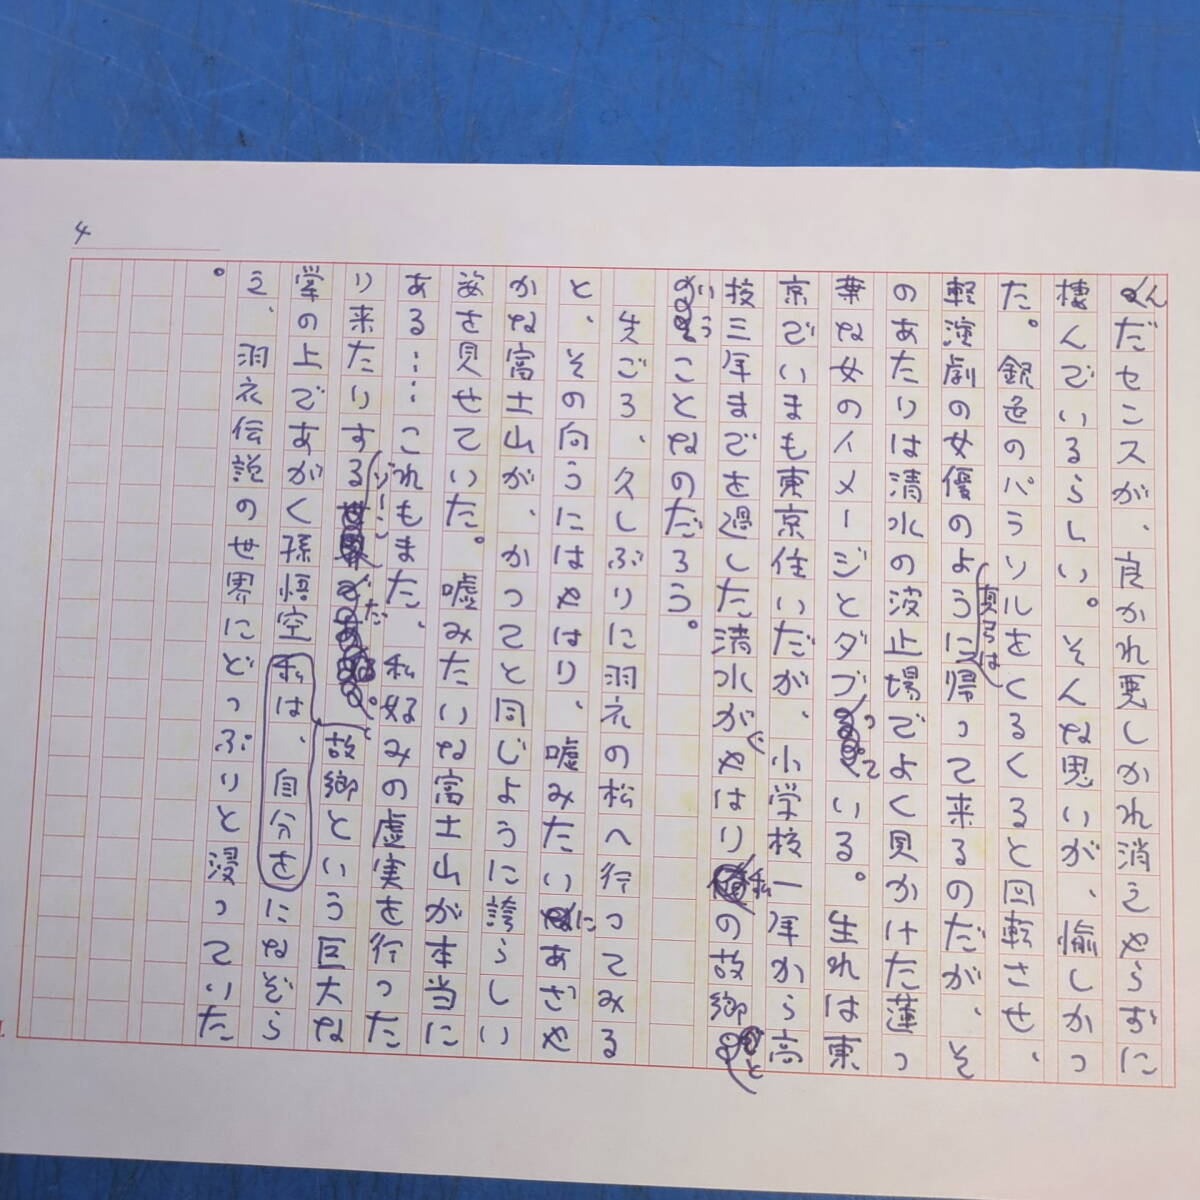 4
んだセンスが、良かれ悪しかれ消えやらずに
棲んでいるらしい。そんな思いが、愉しかっ
た。銀色のパラソルをくるくると回転させ、
軽演劇の女優のように帰って来るのだが、そ
のあたりは清水の波止場でよく見かけた蓮っ
葉な女のイメージとダブっている。生れは東
京でいまも東京住いだが、小学校一年から高
校三年までを過した清水がやはり私の故郷と
いうことなのだろう。
先ごろ、久しぶりに羽衣の松へ行ってみる
と、その向うにはやはり、嘘みたいにあざや
かな富士山が、かつてと同じように誇らしい
姿を見せていた。嘘みたいな富士山が本当に
ある……これもまた、私好みの虚実を行った
り来たりするシーンだ。故郷という巨大な
掌の上であがく孫悟空 私は、自分を になぞら
え、羽衣伝説の世界にどっぷりと浸っていた
。